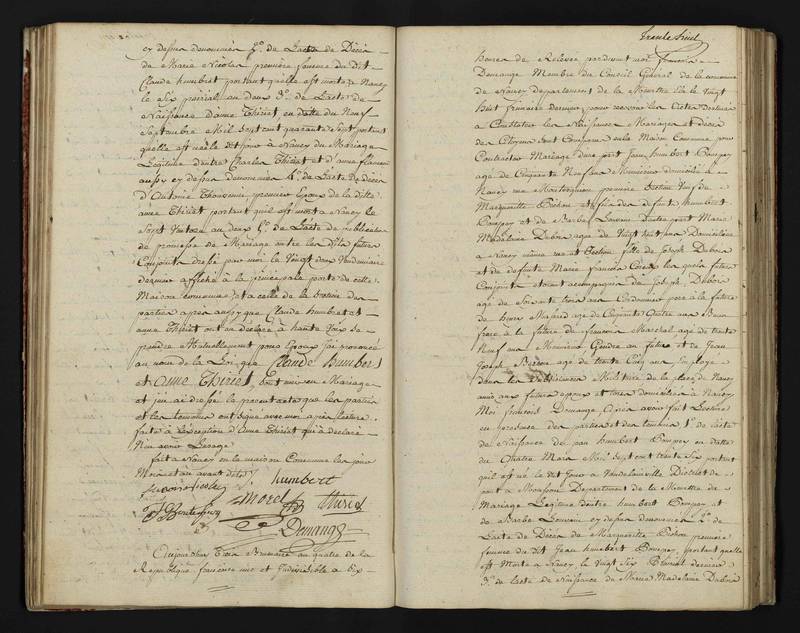 cy dessus denommés 3°. de l'acte de Décès
de Marie Nicolas première femme du dit
Claude humbert portant qu'elle est morte à Nancy
le Six prairial an deux 3°. de L'acte de
Naissance d'anne Thiriet en datte du Neuf
Septembre Mil Sept cent quarante Sept portant
qu'elle est née le dit jour à Nancy du Mariage
Légitime d'entre Charles Thiriet et d'anne
aussy cy dessus denommés 4°. de L'acte de décès
d'Antoine premier Epoux de la ditte
anne Thiriet portant qu'il est mort à Nancy le
Sept Ventose an deux 5°. de L'acte de publication
de promesse de Mariage entre les dits futurs
Conjoints dressé par moi le Vingt deux Vendemiaire
dernier affiché à la principale porte de cette
Maison Commune et à celle de la Section des
parties après aussy que Claude humbert et
anne Thiriet ont eu déclaré à haute Voix se
prendre Mutuellement pour Epoux j'ai prononcé
au nom de la Loi, que Claude Humbert
et Anne Thiriet, sont unis en Mariage
et j'ai dressé le present acte que les parties
et les temoins ont signé avec moi après lecture
faite à l'exception d'Anne Thiriet qui a déclaré
N'en avoir l'usage
fait à Nancy en la maison Commune les jour
Mois et an avant dits
humbert
Morel
Thiriet
Demange
Aujourd'hui Trois Brumaire an quatre de la
Republique francaise une et Indivisible a Six
Trente huit
heures de Relevée pardevant moi francois
Demange Membre du Conseil Général de la commune
de Nancy departement de la Meurthe élu le Vingt
huit frimaire dernier, pour recevoir les Actes destinés
à Constater les Naissances Mariages et décès
des Citoyens sont Comparus en la Maison Commune pour
Contracter Mariage d'une part Jean humbert Poupey
agé de Cinquante Neuf ans Menuisier domicilié à
Nancy première Section Veuf de
Marguerite et fils de defunts humbert
Poupey et de Barbe Louveau D'autre part Marie
Madelaine Dubois agée de Vingt huit ans Domiciliée
à Nancy même rue et Section fille de Joseph Dubois
et de defunte Marie francoise les quels futurs
Conjoints étoient accompagnés de Joseph Dubois
agé de Soixante trois ans Cordonnier père à la future
de henry agé de Cinquante Quatre ans Beau
frere à la future de francois Marchal agé de trente
Neuf ans Menuisier Gendre au futur et de Jean
Joseph agé de trente Cinq ans Employé
dans les Militaire de la place de Nancy
amis aux futurs epoux et tous domiciliés à Nancy
Moi francois Demange Après avoir fait Lecture
en presence des parties et des temoins 1°. de l'acte
de Naissance de Jean humbert Poupey en datte
du Quatre Mars Mil Sept cent trente Six portant
qu'il est né le dit Jour à Vandelainville District de
pont à Mousson Departement de la Meurthe du
Mariage Légitime d'entre humbert Poupey et
de Barbe Louveau cy dessus denommés 2°. de
L'acte de Décès de Marguerite première
femme du dit Jean humbert Poupey, portant qu'elle
est Morte à Nancy, le Vingt Six dernier
3°. de L'acte de Naissance de Marie Madelaine Dubois